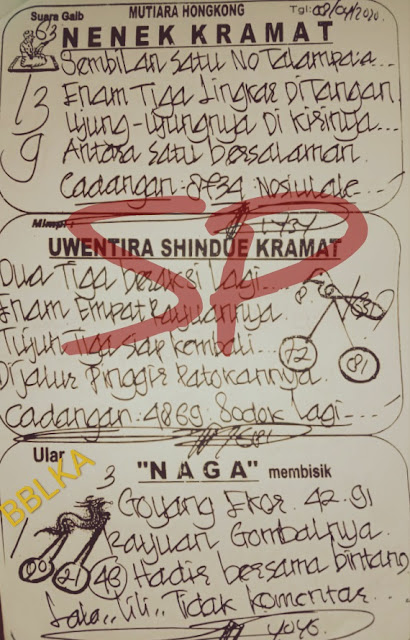 Suara Gaib MUTIARA HONGKONG Tgl: 08/04/2020.
63 NENEK KRAMAT
Sembilan satu No Talampa...
13 Enam Tiga Lingkar Di Tangan
Ujung-ujungnya Di Kirinya...
9 Antara satu bersalaman.
Cadangan: 8734
Mimpi:
UWENTIRA SHINDUE KRAMAT
Dua Tiga beraksi lagi....
8
Enam Empat Rayuannya.
Tujuh Tiga siap kembali...
72 81
Dijalur Pinggir Patokannya.
Cadangan: 4869. Sodok lagi....
SP
Ular "NAGA" membisik
BBLKA
3
Goyang Ekor. 42.91
1
Rayuan Gombalnya.
21 43 Hadir bersama bintang
Lala.. Lili.. Tidak komentar...
4045.